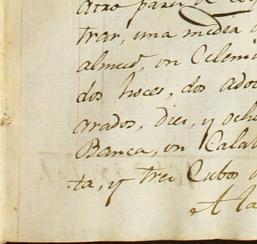 otro par de
trar, una media
almud, un Celemi
dos hoces, dos ado
arados, Diez, y och
Banca, un Cala
ta, y tres Cubos
A la